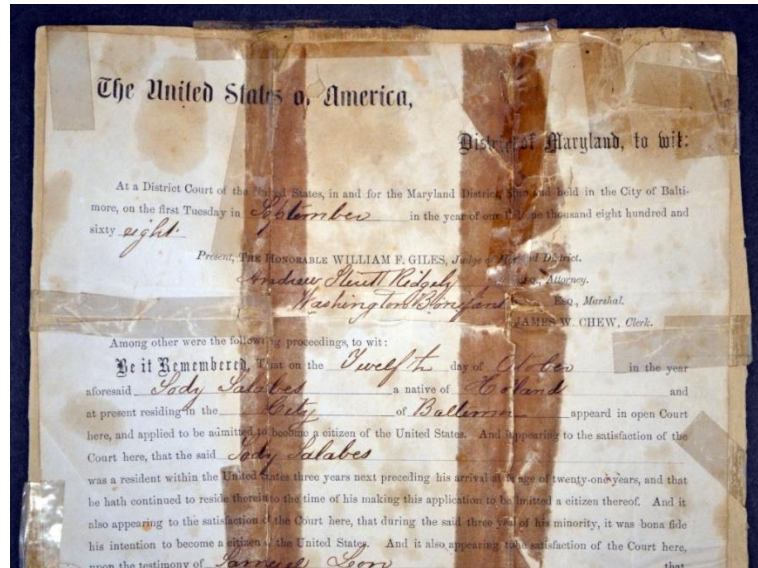 The United States of America,
District of Maryland, to wit:
At a District Court of the United States, in and for the Maryland District, and held in the City of Balti-
more, on the first Tuesday in September in the year of our thousand eight hundred and
sixty eight
Present, THE HONORABLE WILLIAM F. GILES, Judge of Maryland District.
Andrew Sterett Ridgely ESQ., Attorney.
Washington Bonifant ESQ., Marshal.
JAMES W. CHEW, Clerk.
Among other were the following proceedings, to wit:
Be it Remembered, That on the Twelfth day of October in the year
aforesaid Jody Salabes a native of Holand and
at present residing in the City of Baltimore appeard in open Court
here, and applied to be admitted to become a citizen of the United States. And it appearing to the satisfaction of the
Court here, that the said Jody Salabes
was a resident within the United States three years next preceding his arrival at age of twenty-one years, and that
he hath continued to reside therein to the time of his making this application to be admitted a citizen thereof. And it
also appearing to the satisfaction of the Court here, that during the said three years of his minority, it was bona fide
his intention to become a citizen of the United States. And it also appearing to the satisfaction of the Court here,
upon the testimony of Samuel Leon that